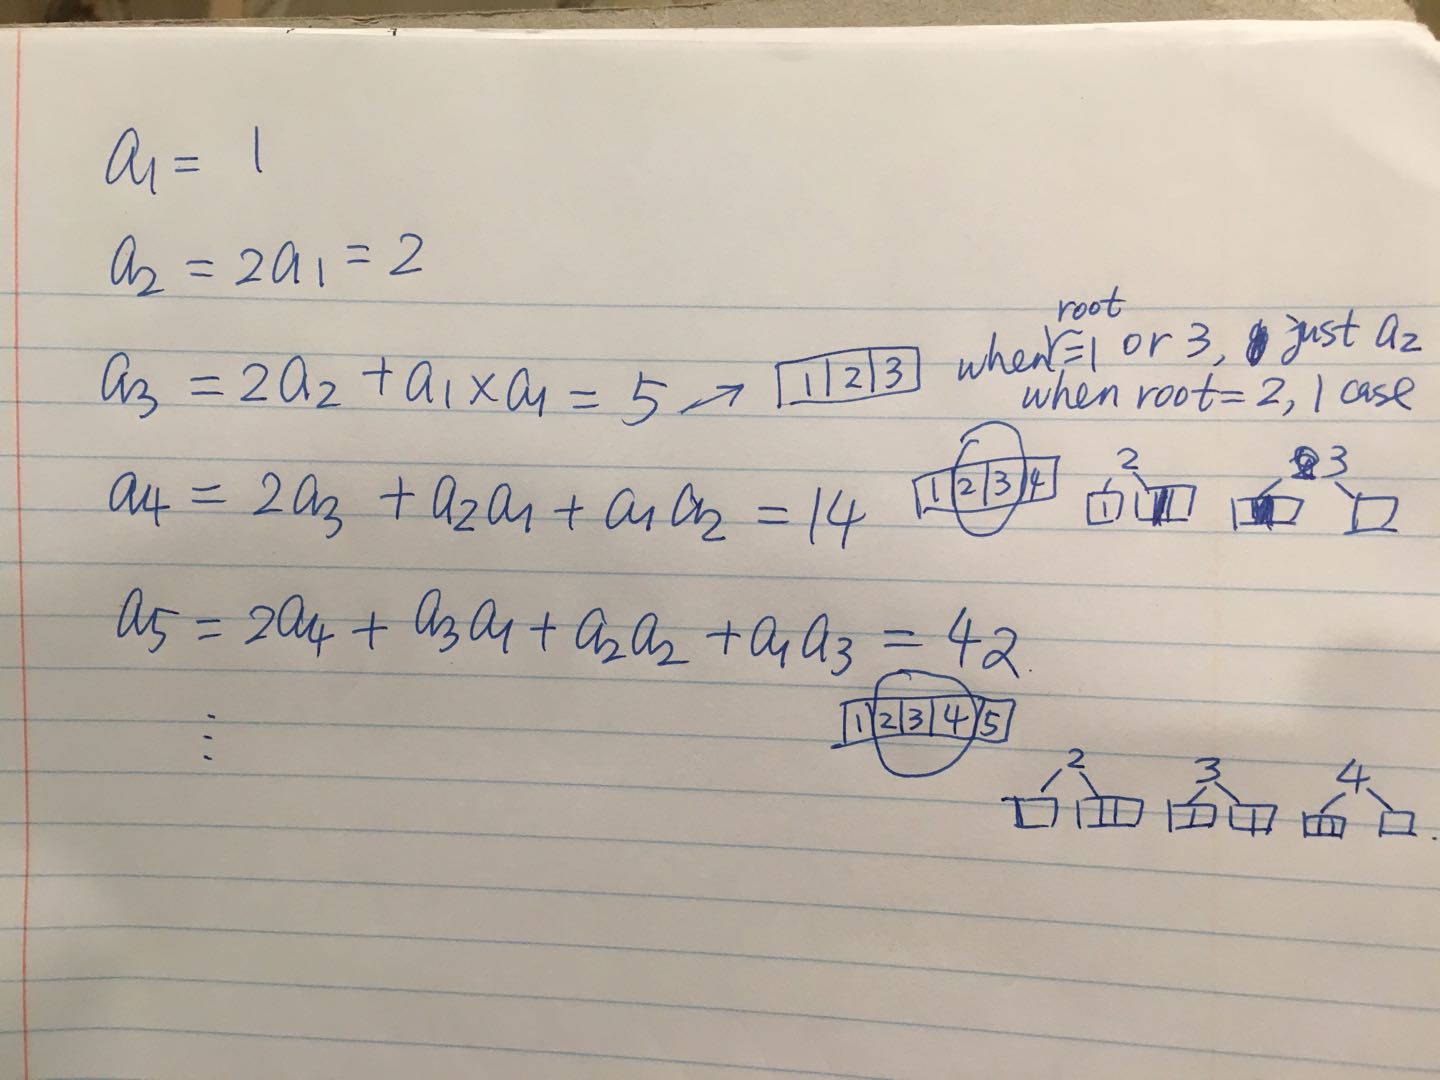 a₁ = 1
a₂ = 2a₁ = 2
a₃ = 2a₂ + a₁ × a₁ = 5 → 1 2 3 when root=1 or 3, just a₂
when root = 2, 1 case
a₄ = 2a₃ + a₂a₁ + a₁a₂ = 14 1 2 3 4 2 1 3
a₅ = 2a₄ + a₃a₁ + a₂a₂ + a₁a₃ = 42.
⋮ 1 2 3 4 5
2 3 4